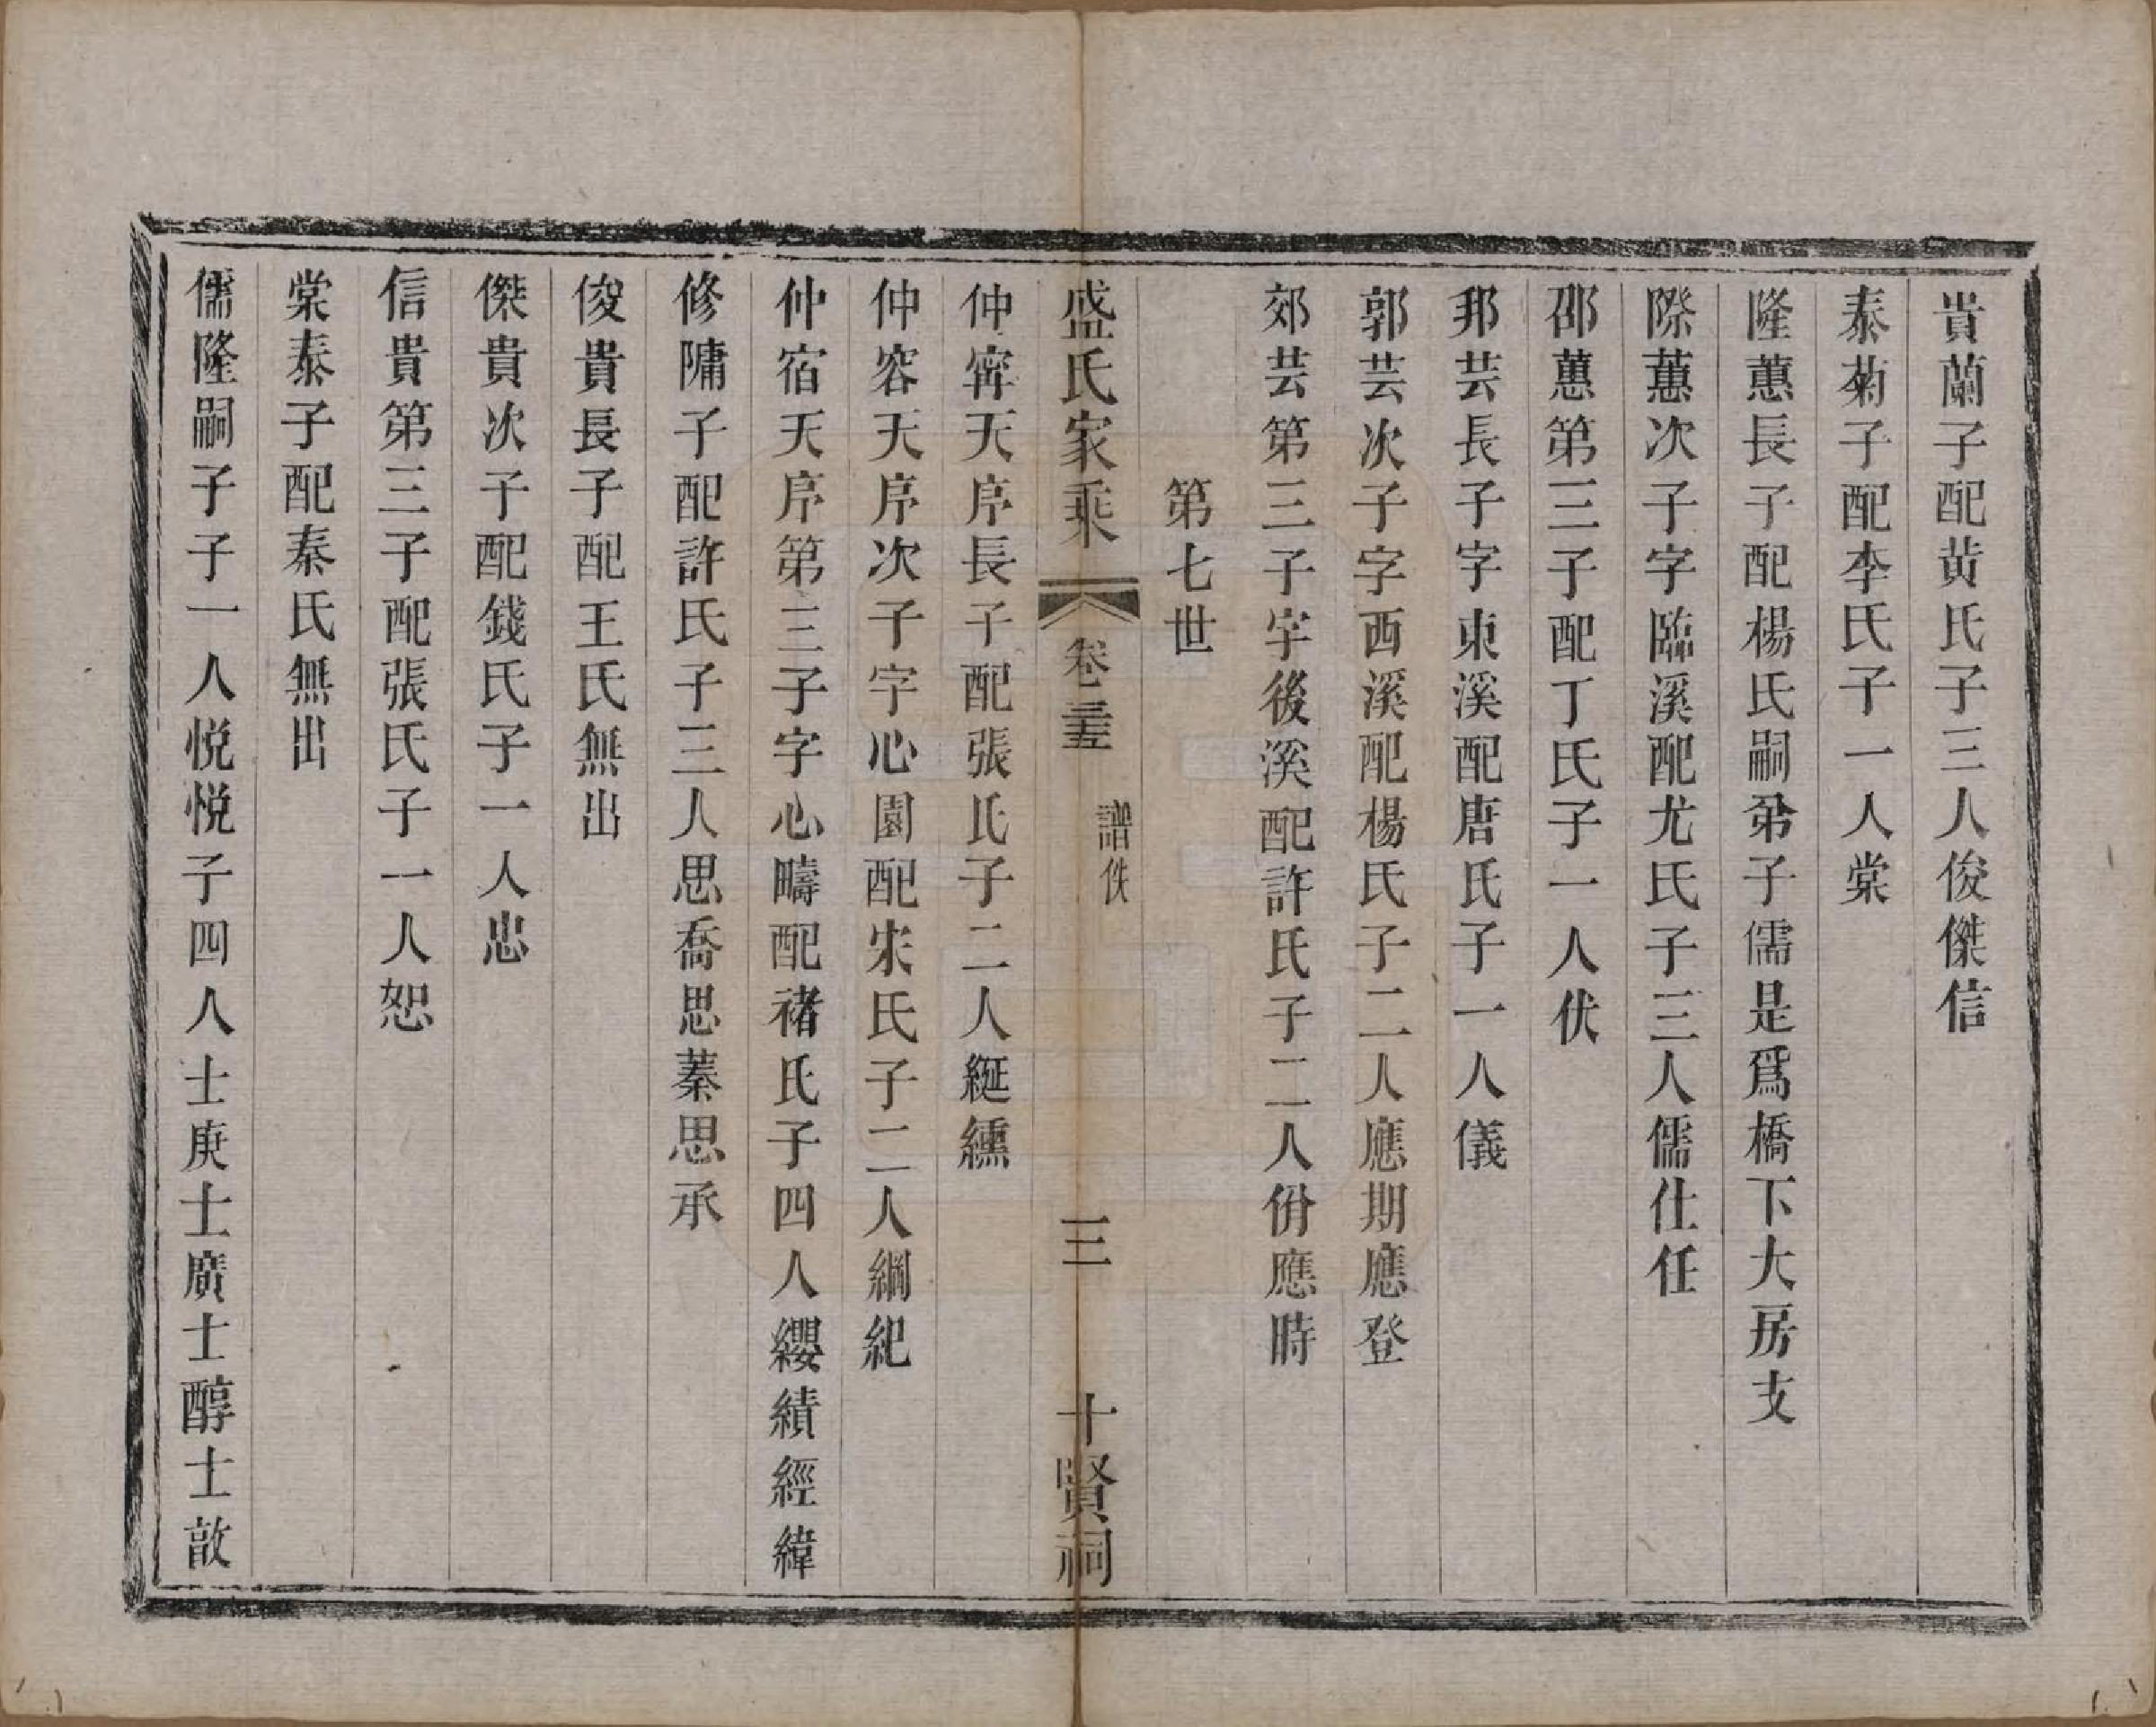 貴蘭子配黄氏子三人俊傑信
泰菊子配李氏子一人棠
隆蕙長子配楊氏嗣弟子儒是爲橋下大房支
際蕙次子字臨溪配尤氏子三人儒仕任
邵蕙第三子配丁氏子一人伏
邦芸長子字東溪配唐氏子一人儀
郭芸次子字西溪配楊氏子二人應期應登
郊芸第三子字後溪配許氏子二人份應時
第七世
盛氏家乘
卷二三五
譜佚
三
十賢祠
仲寗天序長子配張氏子二人綖纁
仲容天序次子字心園配宋氏子二人綱紀
仲宿天序第三子字心疇配禇氏子四人纓績經緯
修隮子配許氏子三人思喬思蓁思承
俊貴長子配王氏無出
傑貴次子配錢氏子一人忠
信貴第三子配張氏子一人恕
棠泰子配秦氏無出
儒隆嗣子子一人悦悦子四人士庚士廣士醇士敨